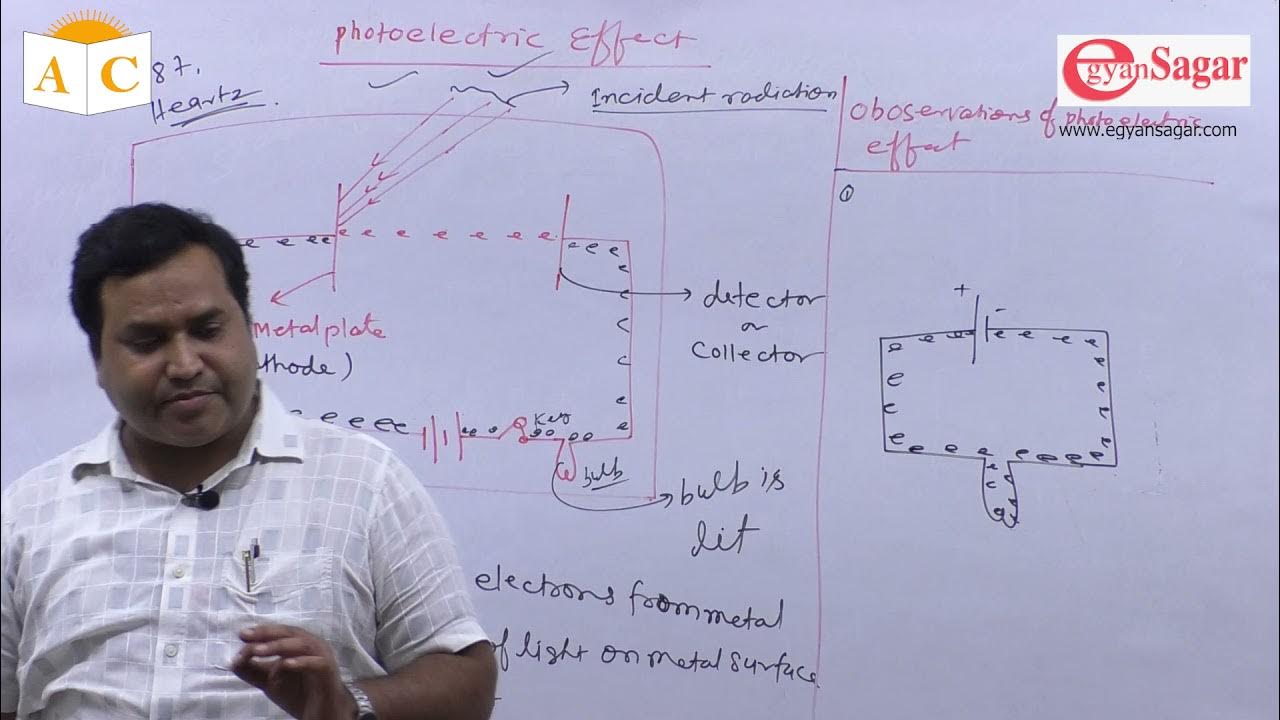 A C
photoelectric Effect
egyanSagar
www.egyansagar.com
87.
Heartz
Incident radiation
Oboservations of photoelectric
effect
①
e e e e e e e e e e e e e
+ -
detector
or
Collector
metal plate
thode)
Key
bulb
bulb is
lit
electrons from metal
of light on metal surface